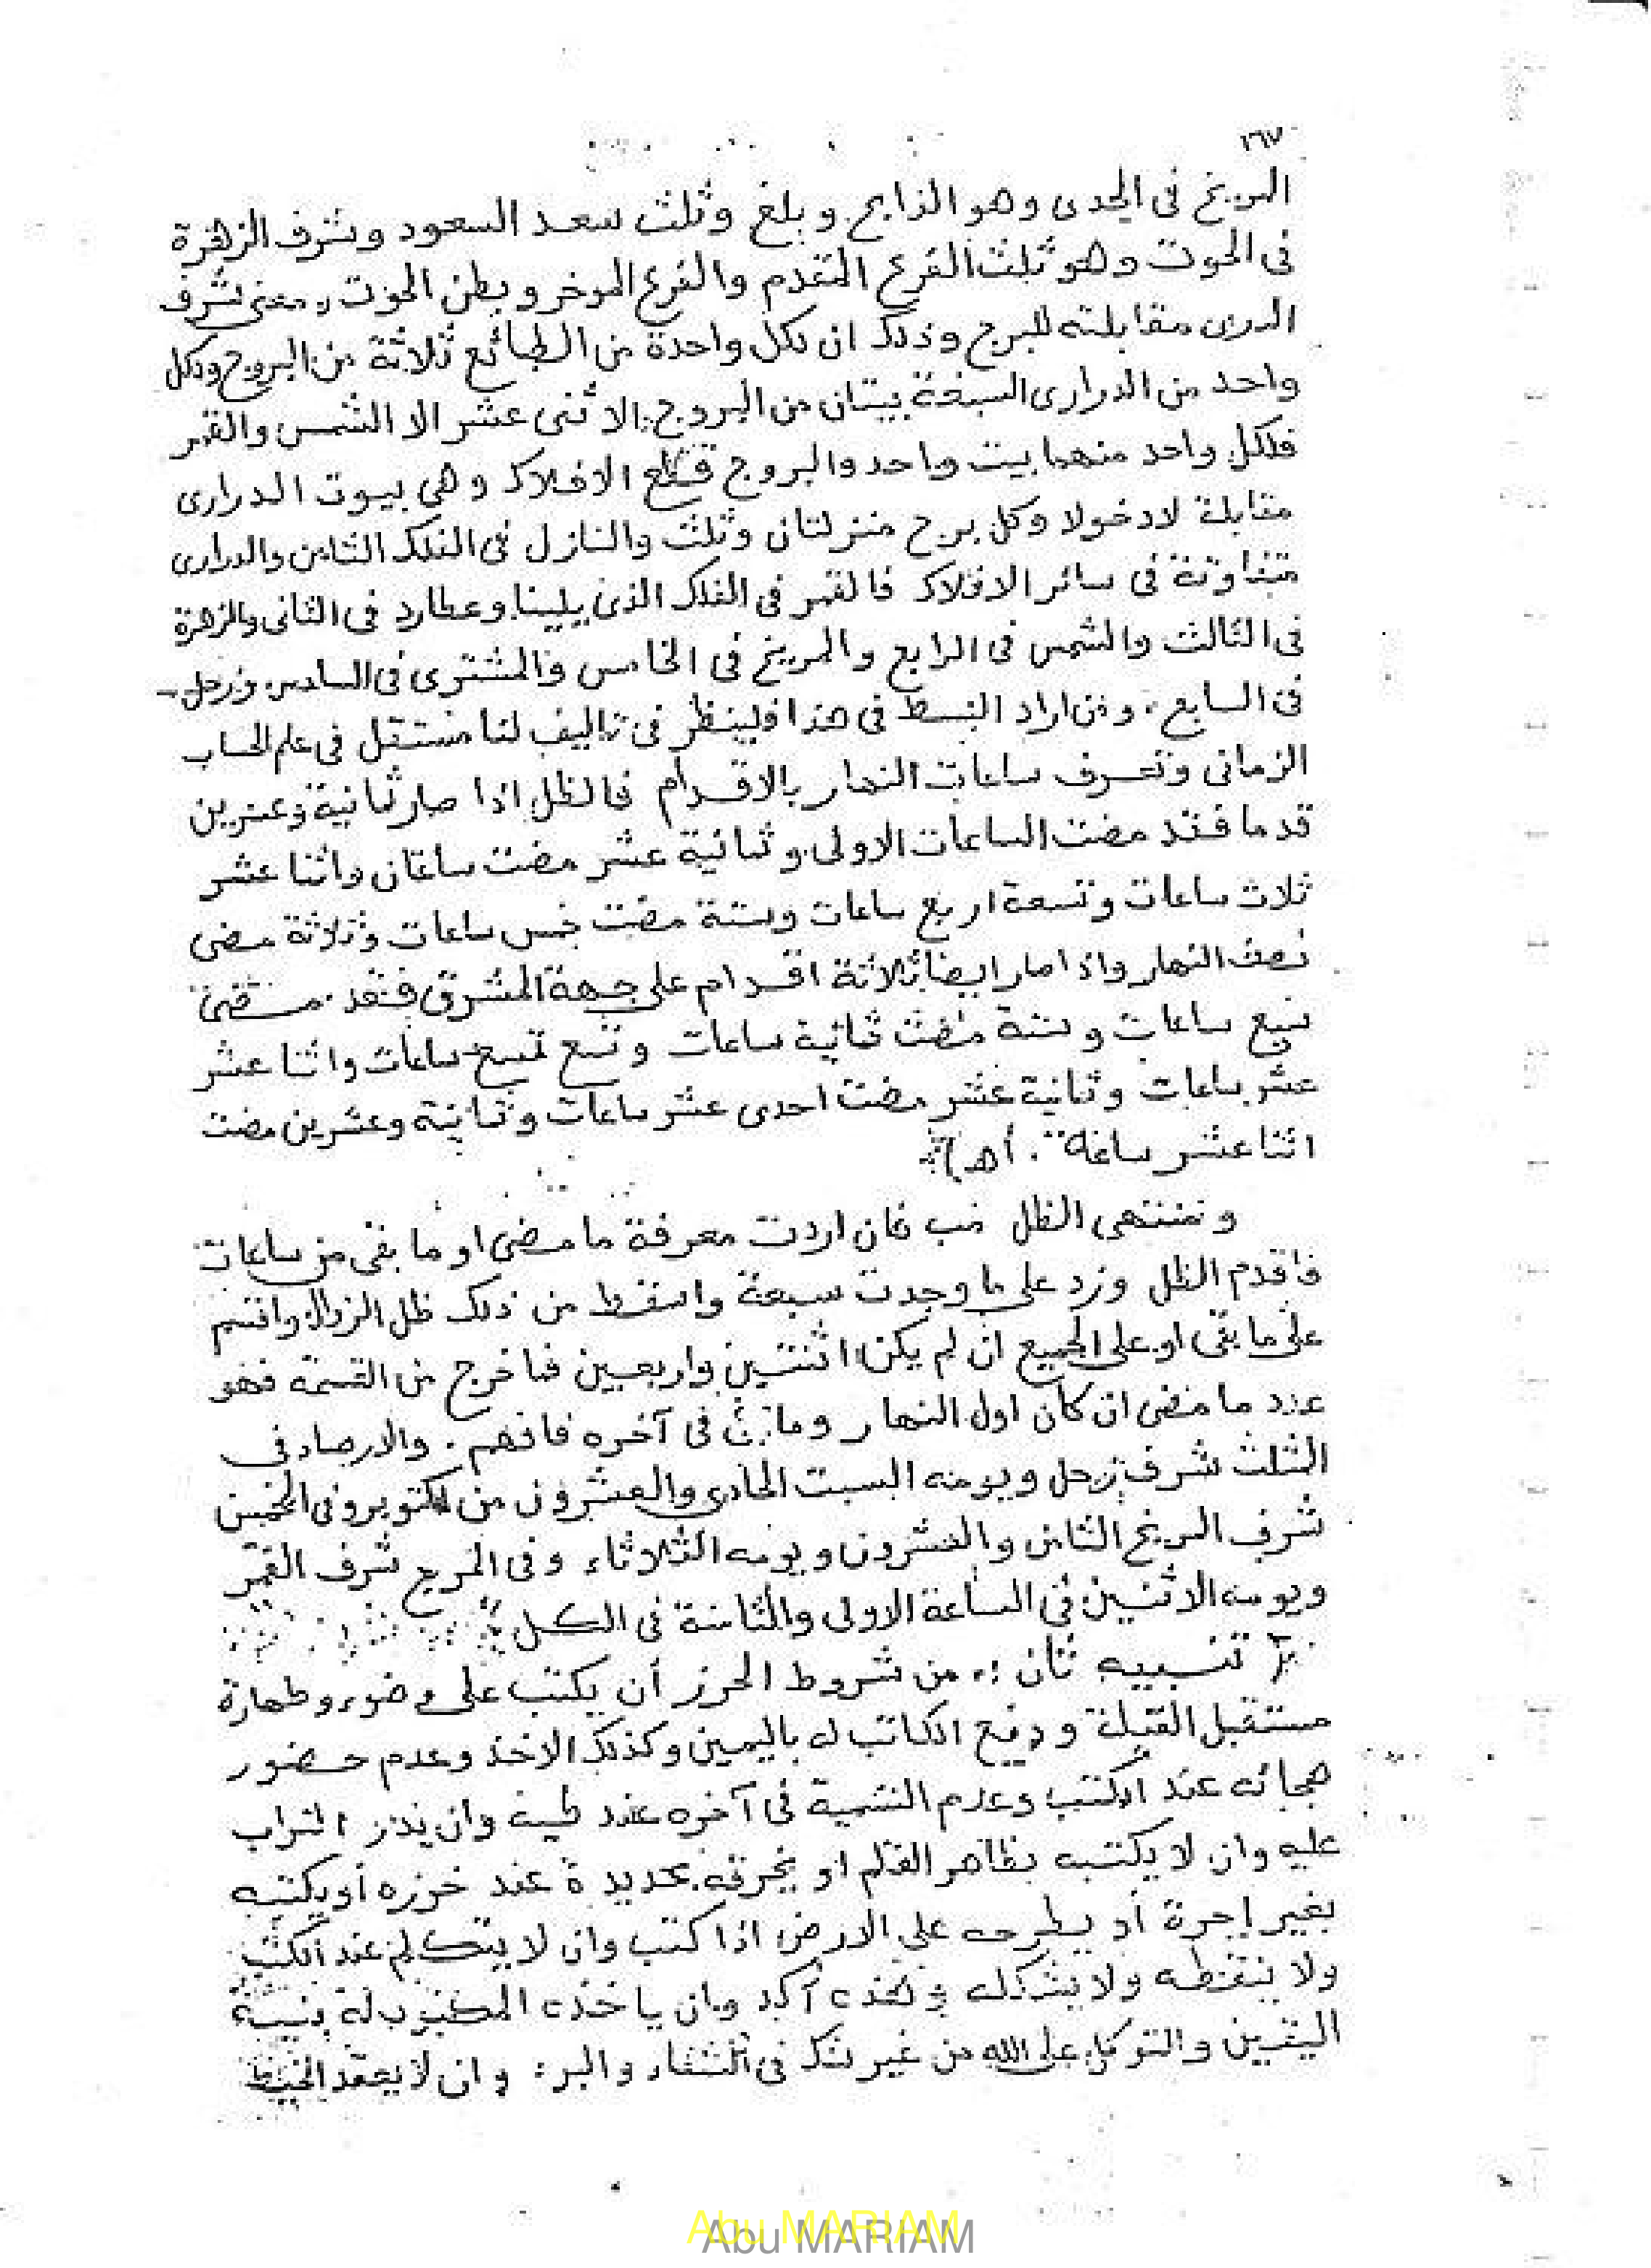 ١٦٧
المريخ فى الجدى وهو الذابح وبلغ وثلث سعد السعود وشرف الزهرة
فى الحوت وهو ثلث الفرع المتقدم والفرع الموخر وبطن الحوت ومعنى شرف
الدرى مقابلته للبرج وذلك ان لكل واحدة من الطبائع ثلاثة من البروج ولكل
واحد من الدرارى السبعة بيتان من البروج الاثنى عشر الا الشمس والقمر
فلكل واحد منهما بيت واحد والبروج قطع الافلاك وهى بيوت الدرارى
مقابلة لادخولا وكل برج منزلتان وثلث والنازل فى الفلك الثامن والدرارى
متفاوتة فى سائر الافلاك فالقمر فى الفلك الذى يلينا وعطارد فى الثانى والزهرة
فى الثالث والشمس فى الرابع والمريخ فى الخامس والمشترى فى السادس وزحل
فى السابع ومن اراد البسط فى هذا فلينظر فى تاليف لنا مستقل فى علم الحساب
الزمانى وتعرف ساعات النهار بالاقدام فالظل اذا صار ثمانية وعشرين
قدما فقد مضت الساعات الاولى وثمانية عشر مضت ساعتان واثنا عشر
ثلاث ساعات وتسعة اربع ساعات وستة مضت خمس ساعات وثلاثة مضى
نصف النهار واذا صار ايضا ثلاثة اقدام على جهة المشرق فقد
سبع ساعات وستة مضت ثمانية ساعات وتسع تسع ساعات واثنا عشر
عشر ساعات وثمانية عشر مضت احدى عشر ساعات وثمانية وعشرين مضت
اثنا عشر ساعة . أهـ)
ومنتهى الظل فان اردت معرفة ما مضى او ما بقى من ساعات
فاقدم الظل وزد على ما وجدت سبعة واسقط من ذلك ظل الزوال واقسم
على ما بقى او على الجميع ان لم يكن اثنتين واربعين فما خرج من القسمة فهو
عدد ما مضى ان كان اول النهار وما فى آخره فافهم . والارصاد فى
الثلث شرف زحل ويومه السبت الحادى والعشرون من اكتوبر وفى الخمين
شرف المريخ الثامن والعشرون ويومه الثلاثاء وفى المربع شرف القمر
ويومه الاثنين فى الساعة الاولى والثامنة فى الكل
تنبيه ثان : من شروط الحرز أن يكتب على وضوء وطهارة
مستقبل القبلة ودفع الكاتب له باليمين وكذلك الاخذ وعدم حضور
هجائه عند الكتب وعدم التسمية فى آخره عند طيه وان يذر التراب
عليه وان لا يكتبه بظاهر القلم او يخرقه بحديدة عند خرزه أو يكتبه
بغير إجرة أو يطرحه على الارض اذا كتب وان لا يتكلم عند الكتب
ولا ينقطه ولا يشكله آكد وان ياخذه المكتوب له بنية
اليقين والتوكل على الله من غير شك فى الشفاء والبر: وان لا يعقد الخيط
Abu MARIAM